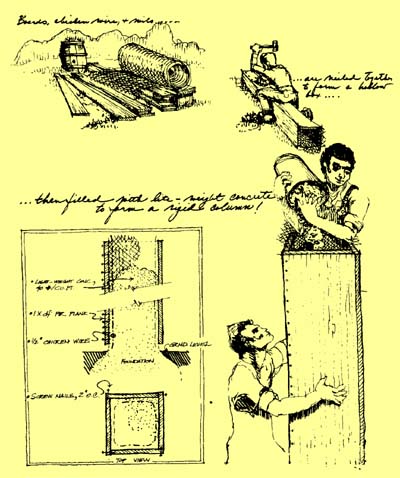 Boards, chicken wire, & nails .....
... are nailed together
to form a hollow
box ....
... then filled with lite-weight concrete
to form a rigid column!
• LIGHT-WEIGHT CONC.
• 1X DF PER. PLANK
• ½" CHICKEN WIRE
GRND LEVEL
FOUNDATION
• SCREW NAILS, 2" O.C.
TOP VIEW